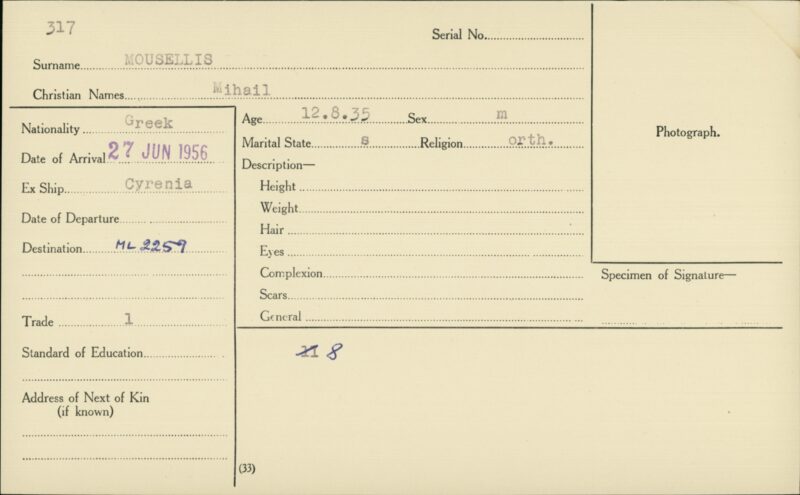 317
Serial No.
Surname MOUSELLIS
Christian Names Mihail
Nationality Greek
Date of Arrival 27 JUN 1956
Ex Ship Cyrenia
Date of Departure
Destination ML 2259
Trade 1
Standard of Education
Address of Next of Kin
(if known)
Age 12.8.35 Sex m
Marital State s Religion orth.
Description—
Height
Weight
Hair
Eyes
Complexion
Scars
General
8
(33)
Photograph.
Specimen of Signature—